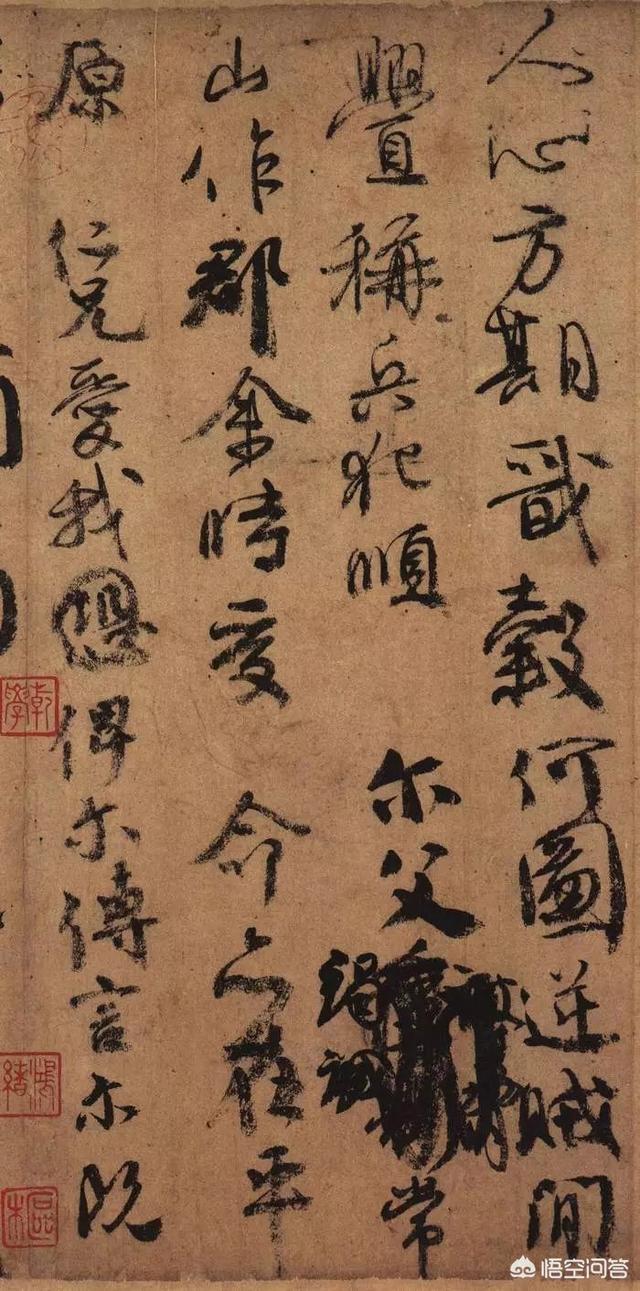 人心方期戩穀何圖逆賊閒
釁稱兵犯順 尔父竭誠常
山作郡余時受 命亦在平
原 仁兄愛我俾尔傳言尔既
乾學
鴻緒
悟空问答